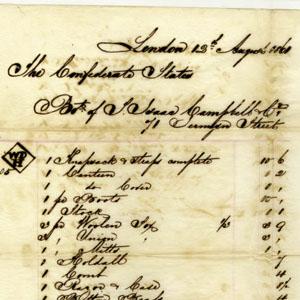 London 13th August 1861
The Confederate States
Bot. of S Isaac Campbell & Co.
71 Jermyn Street
1 Knapsack & Straps complete 10 6
1 Canteen 2
1 do Cover
1 pr Boots
1 Stock 1
2 pr Woolen Sox 9
2 Union
1 Mitts
1 Holdall
1 Comb 4
1 Razor & Case